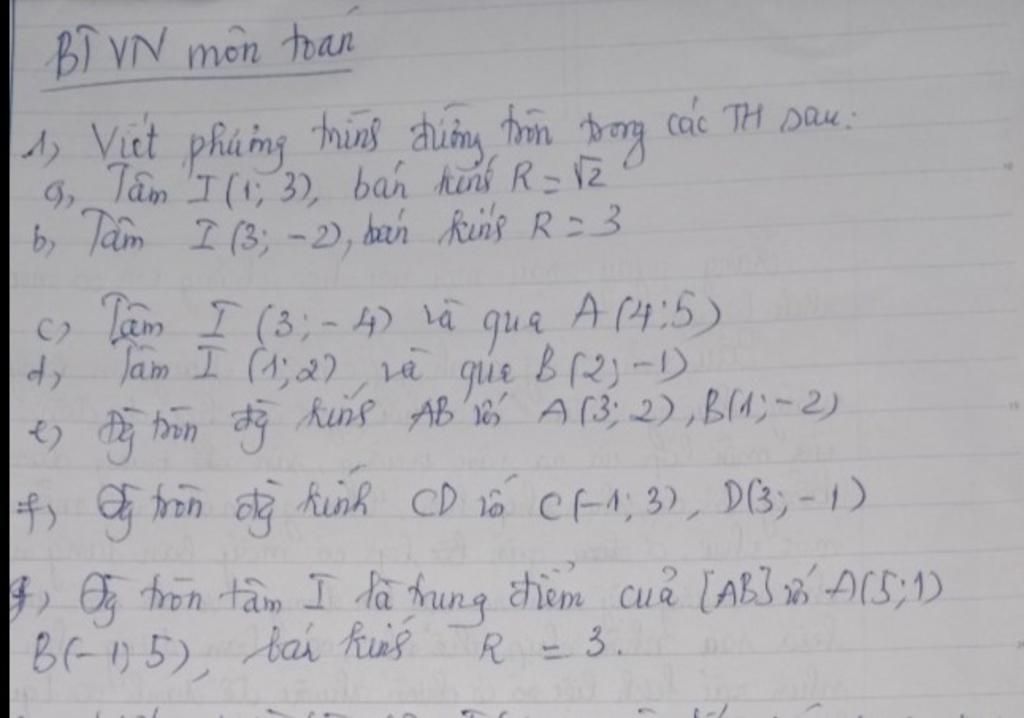 BTVN môn toán
1, Viết phương trình đường tròn trong các TH sau:
a, Tâm I(1; 3), bán kính R = √2
b, Tâm I(3; -2), bán kính R = 3
c) Tâm I (3; -4) và qua A(4; 5)
d, Tâm I (1; 2), và qua B(2; -1)
e) Đg tròn đg kính AB với A(3; 2), B(1; -2)
f, Đg tròn đg kính CD với C(-1; 3), D(3; -1)
g, Đg tròn tâm I là trung điểm của [AB] với A(5; 1)
B(-1; 5), bán kính R = 3.